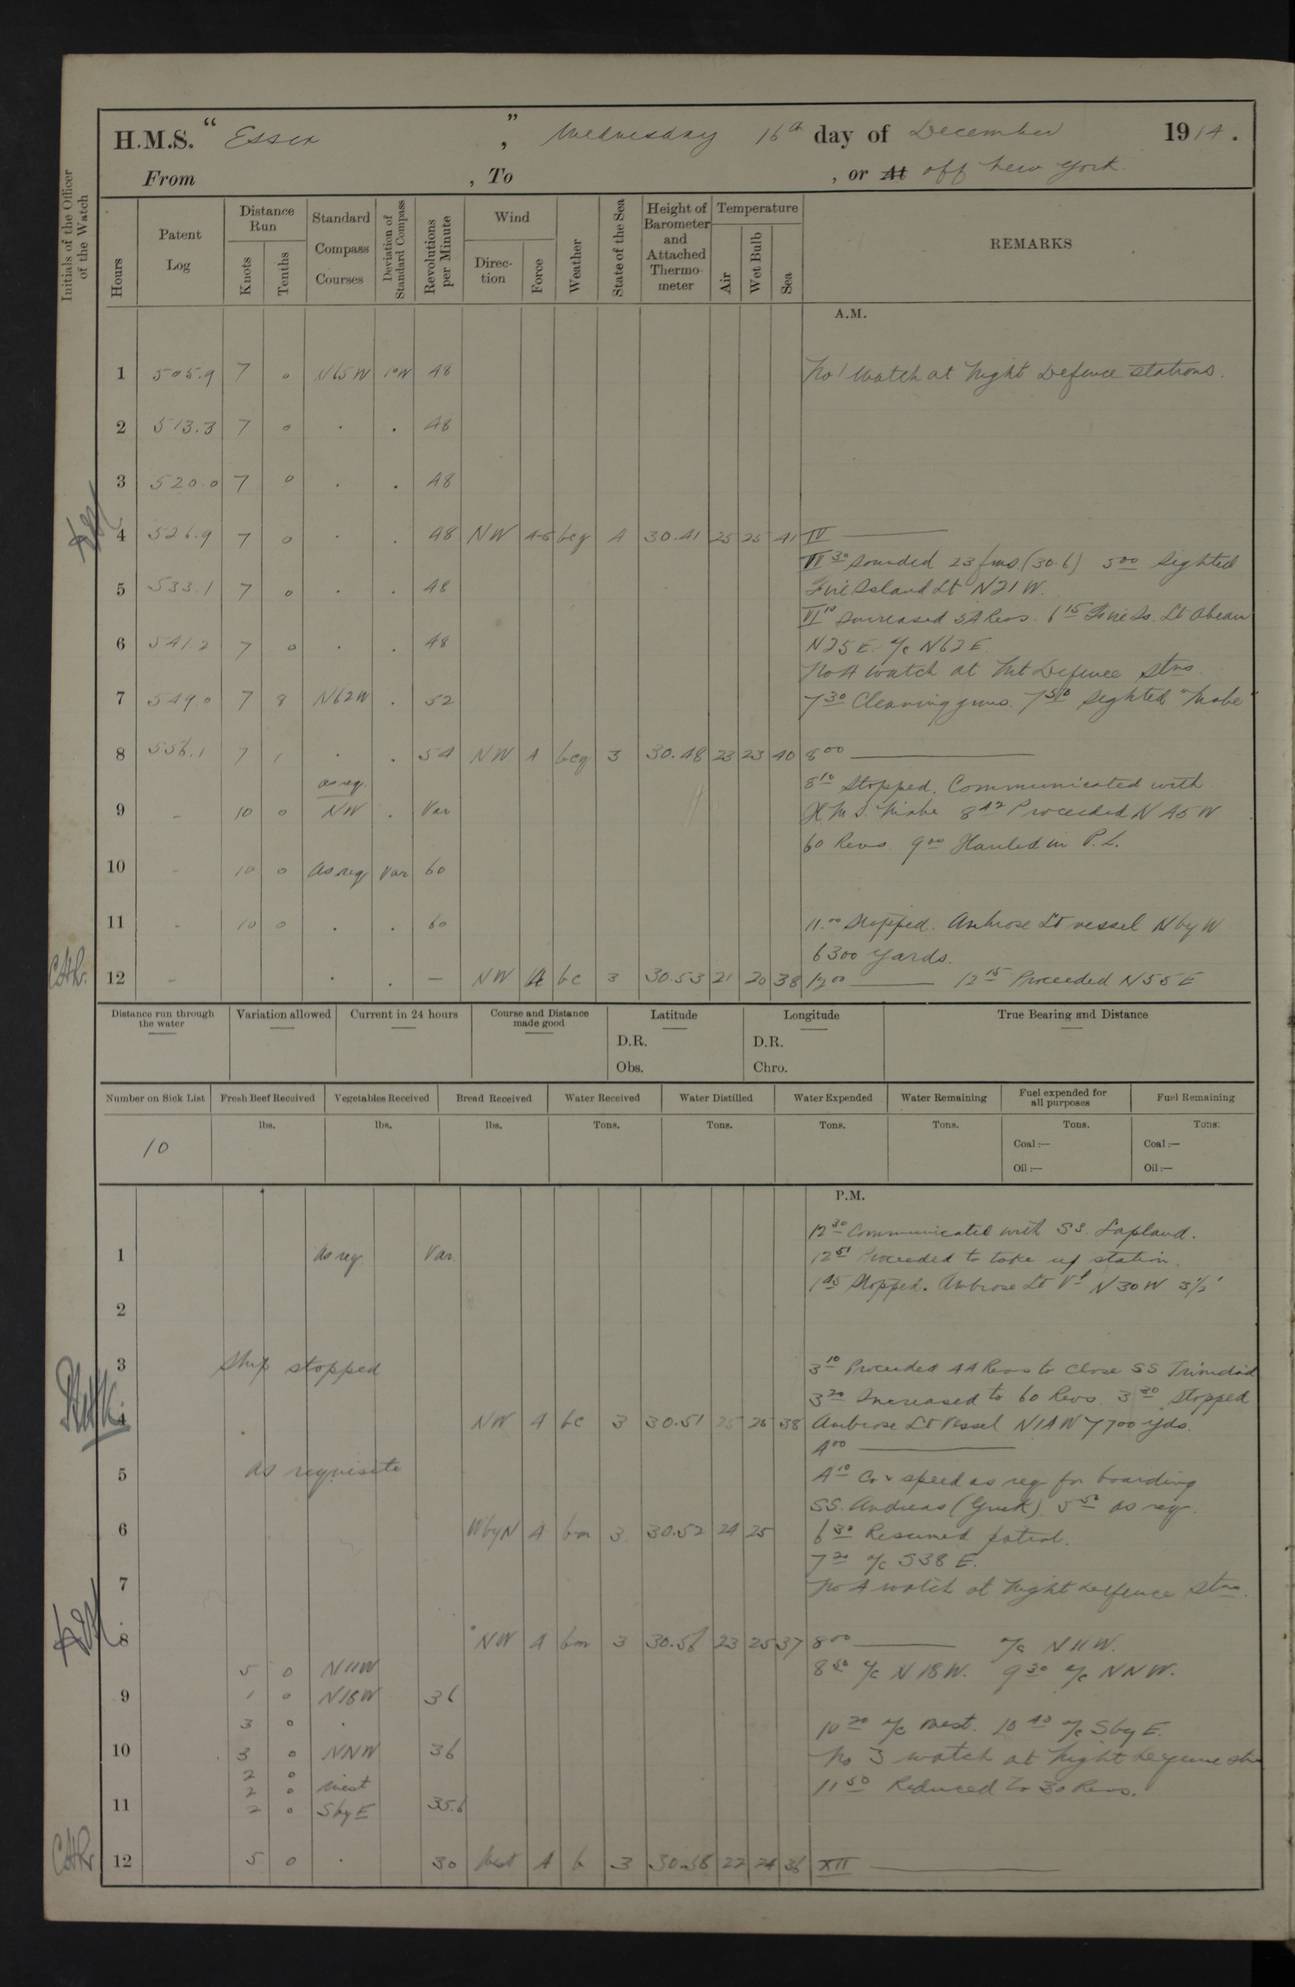 H.M.S. "Essex", Wednesday 16th day of December 1914.
From , To , or At off New York.
Initials of the Officer of the Watch
Hours
Patent Log
Distance Run
Knots
Tenths
Standard Compass Courses
Deviation of Standard Compass
Revolutions per Minute
Wind
Direction
Force
Weather
State of the Sea
Height of Barometer and Attached Thermometer
Temperature
Air
Wet Bulb
Sea
REMARKS
A.M.
1 505.9 7 0 N65W 1°W 48 No 1 Watch at Night Defence Stations.
2 513.3 7 0 . . 48
3 520.0 7 0 . . 48
4 526.9 7 0 . . 48 NW 4-5 bcq 4 30.41 25 25 41 IV
sounded 23 fms. (30.6) 5 00 Sighted
5 533.1 7 0 . . 48 Fire Island Lt N21W.
VI 10 Increased 54 Revs. 6 15 Fire Is. Lt Abeam
6 541.2 7 0 . . 48 N25E. a/c N62E
No 4 watch at Nt Defence Stns
7 549.0 7 8 N62W . 52 7 30 Cleaning guns. 7 50 Sighted "Niobe"
8 556.1 7 1 . . 54 NW 4 bcq 3 30.48 23 23 40 8 00
as req.
8 10 Stopped. Communicated with
9 - 10 0 NW . Var H.M.S. Niobe 8 42 Proceeded N45W
60 Revs 9 00 Hauled in P.L.
10 - 10 0 As req Var 60
11 - 10 0 . . 60 11.00 Stopped. Ambrose Lt vessel N by W
6300 yards.
12 - . . — NW 4 bc 3 30.53 21 20 38 12 00 12 15 Proceeded N55E
Distance run through the water
Variation allowed
Current in 24 hours
Course and Distance made good
Latitude
D.R.
Obs.
Longitude
D.R.
Chro.
True Bearing and Distance
Number on Sick List
Fresh Beef Received
Vegetables Received
Bread Received
Water Received
Water Distilled
Water Expended
Water Remaining
Fuel expended for all purposes
Fuel Remaining
lbs. lbs. lbs. Tons. Tons. Tons. Tons. Tons. Tons.
10
Coal:— Coal:—
Oil:— Oil:—
P.M.
12 30 Communicated with SS. Lapland.
1 As req Var. 12 51 Proceeded to take up station.
1 45 Stopped. Ambrose Lt Vl N30W 3½'
2
3 Ship stopped 3 10 Proceeded 44 Revs to close SS Trinidad
3 20 Increased to 60 Revs 3 30 Stopped
4 NW 4 bc 3 30.51 25 26 38 Ambrose Lt Vessel N14W 7700 yds.
4 00
5 as requisite 4 10 Co & speed as req for boarding
SS. Andreas (Greek). 5 50 as req.
6 W by N 4 bm 3 30.52 24 25 6 30 Resumed patrol.
7 20 a/c S38E.
7 No 4 watch at Night Defence Stns.
8 NW 4 bm 3 30.56 23 25 37 8 00 a/c N11W.
5 0 N11W 8 50 a/c N18W. 9 30 a/c NNW.
9 1 0 N18W 36
3 0 . 10 20 a/c West. 10 40 a/c S by E.
10 3 0 NNW 36 No 3 watch at Night Defence Stns
2 0
2 0 West 11 50 Reduced to 30 Revs.
11 2 0 S by E 35.6
12 5 0 . 30 West 4 b 3 30.58 22 24 36 XII